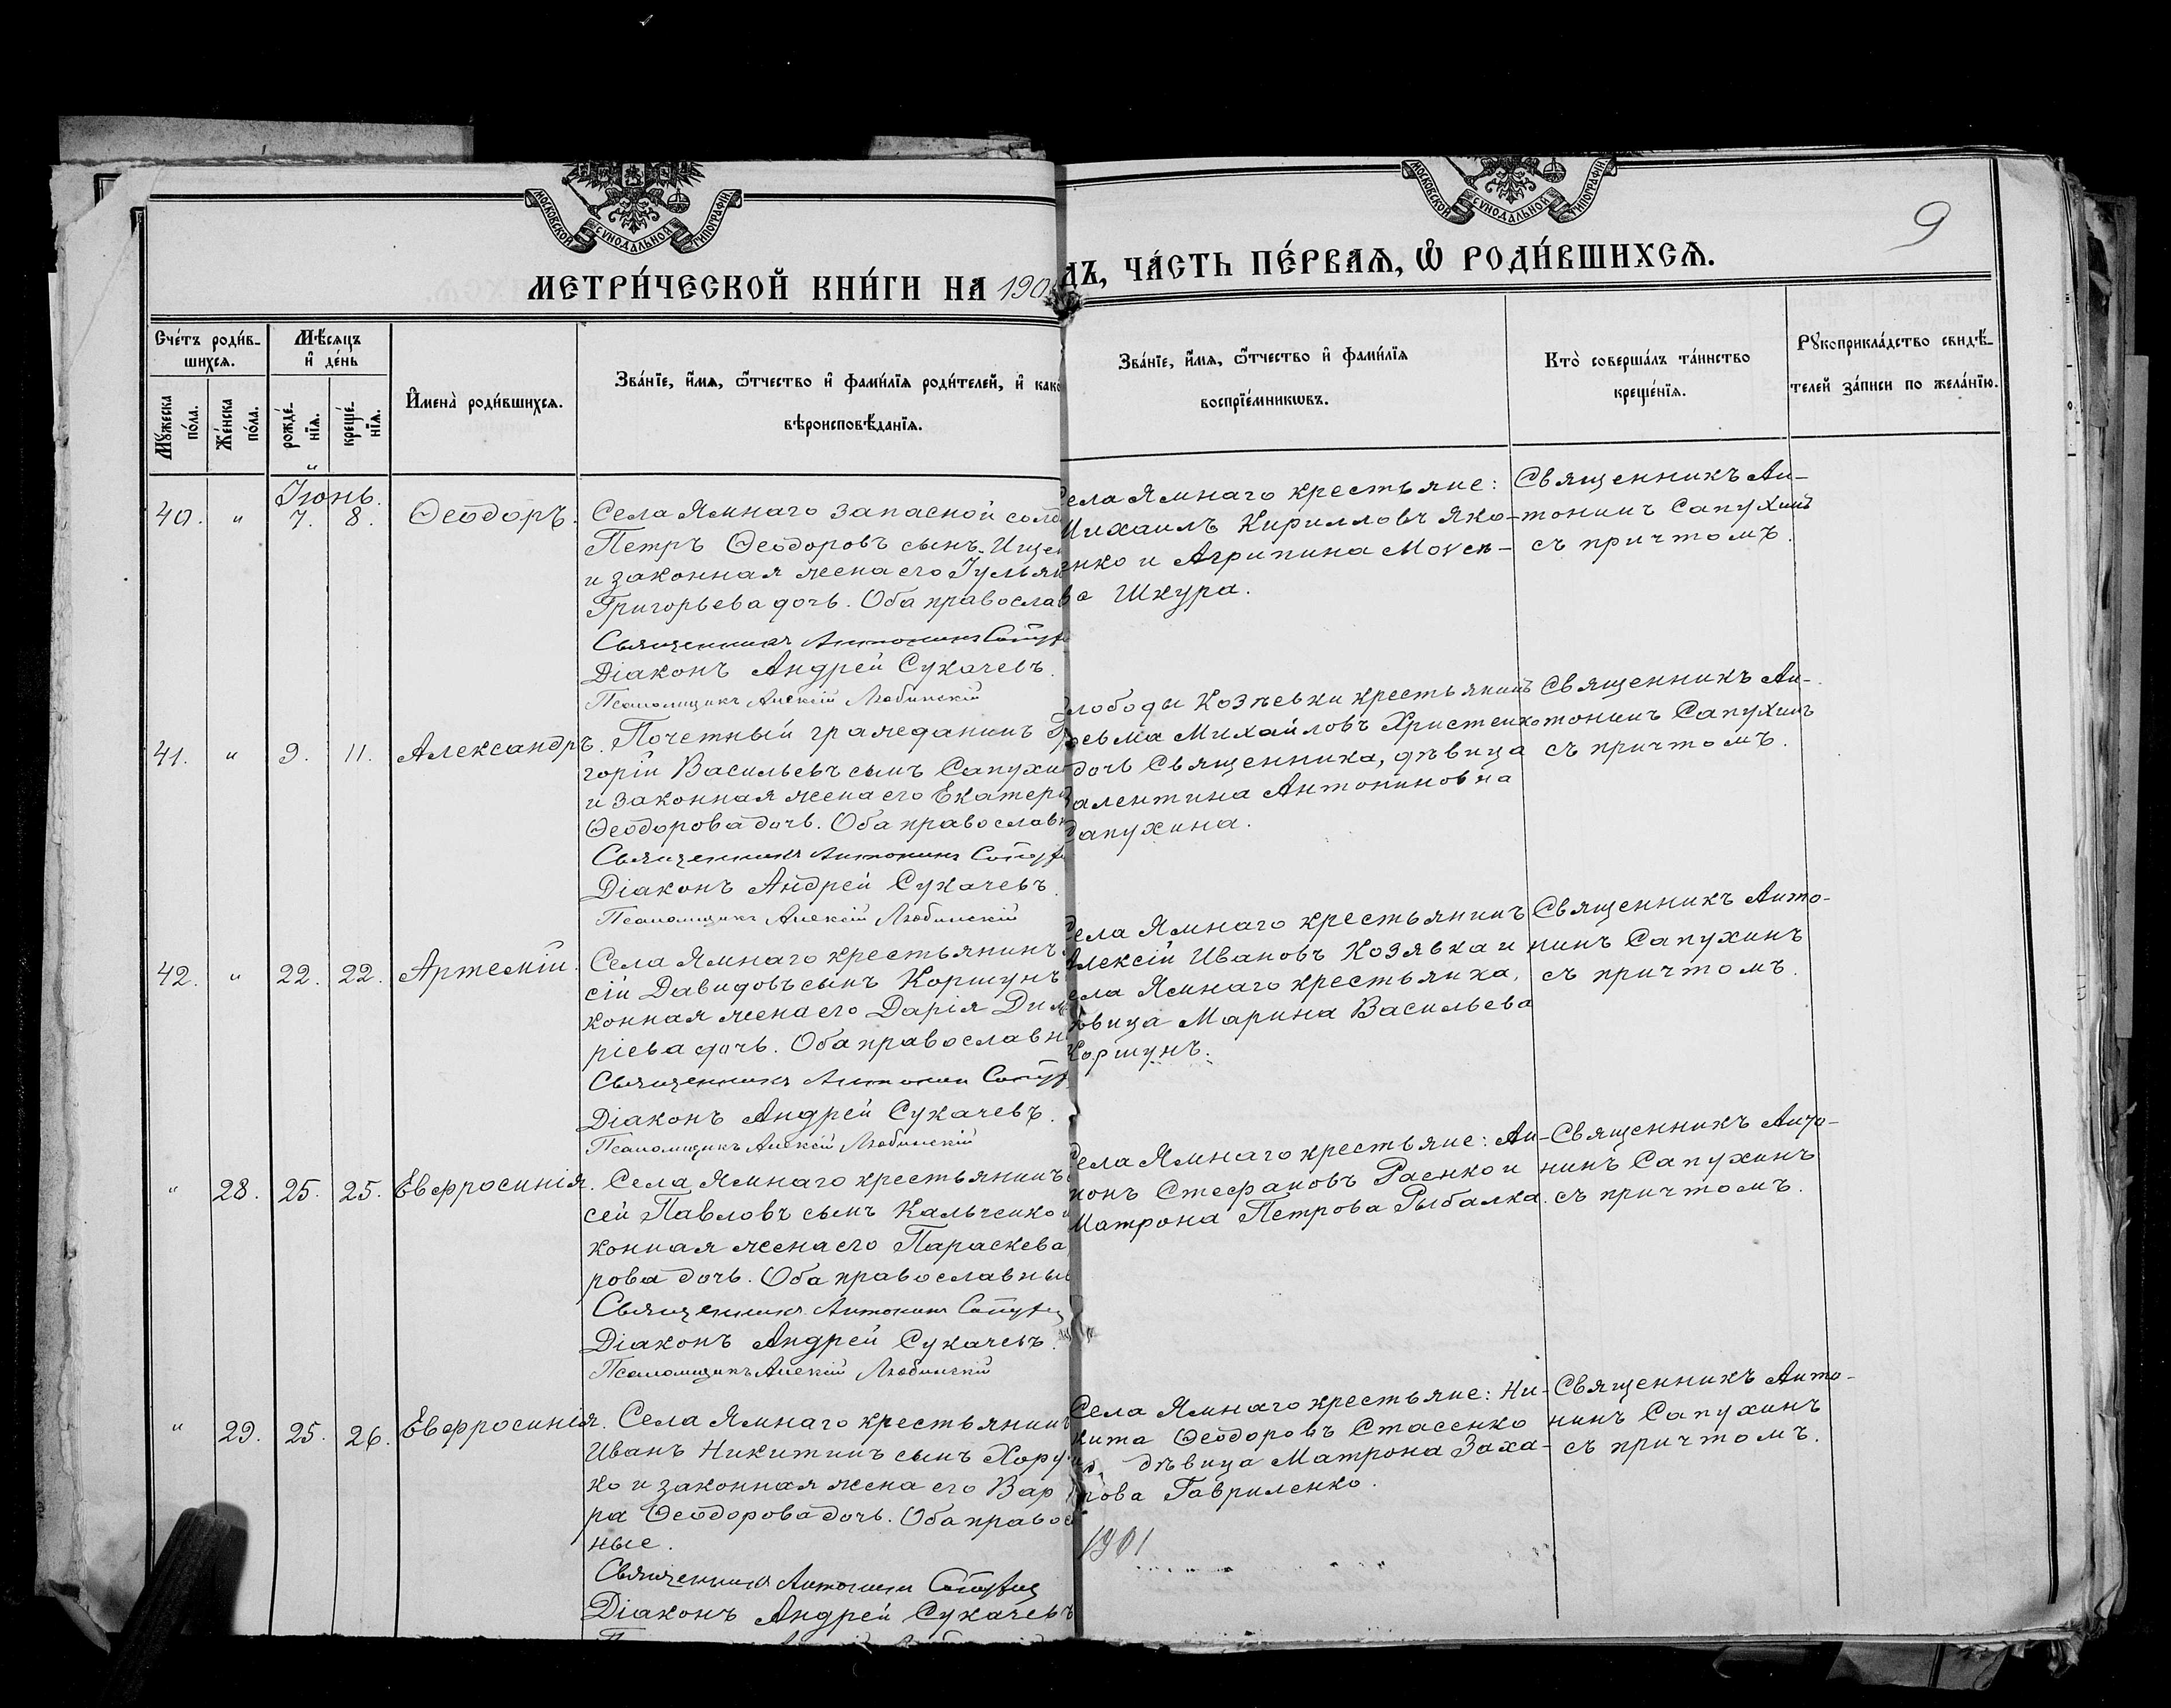 МОСКОВСКОЙ СУНОДАЛЬНОЙ ТИПОГРАФІИ
МОСКОВСКОЙ СУНОДАЛЬНОЙ ТИПОГРАФІИ
9
МЕТРИ́ЧЕСКОЙ КНИ́ГИ НА 190
ДЪ, ЧА́СТЬ ПЕ́РВАѦ, Ѿ РОДИ́ВШИХСѦ.
Сче́тъ роди́в-
шихсѧ.
Мꙋ́жеска по́ла.
Же́нска по́ла.
Мѣ́сѧцъ
и҆ де́нь
рожде́-нїѧ.
креще́-нїѧ.
И҆мена̀ роди́вшихсѧ.
Зва́нїе, и҆́мѧ, ѻ҆́тчество и҆ фами́лїѧ роди́телей, и҆ како
вѣроисповѣ́данїѧ.
Зва́нїе, и҆́мѧ, ѻ҆́тчество и҆ фами́лїѧ
воспрїе́мникѡвъ.
Кто̀ соверша́лъ та́инство
креще́нїѧ.
Рꙋкоприкла́дство свидѣ́-
телей за́писи по жела́нїю.
Іюнь.
40. " 7. 8. Ѳеодоръ.
Села Ямнаго запасной солд
Петръ Ѳеодоровъ сынъ Ищен
и законная жена его Іульян
Григорьева дочь. Оба православ
Священникъ Антонинъ Сапух
Діаконъ Андрей Сукачевъ.
Псаломщикъ Алексій Любинскій
Села Ямнаго крестьяне:
Михаилъ Кирилловъ Яко-
енко и Агрипина Моѵсе-
ва Шкура.
Священникъ Ан-
тонинъ Сапухинъ
съ причтомъ.
41. " 9. 11. Александръ.
Почетный гражданинъ Гр
горій Васильевъ сынъ Сапухи
и законная жена его Екатери
Ѳеодорова дочь. Оба православн
Священникъ Антонинъ Сапух
Діаконъ Андрей Сукачевъ.
Псаломщикъ Алексій Любинскій
Слободы Козѣевки крестьянинъ
Косьма Михайловъ Христенко
дочь Священника, дѣвица
Валентина Антониновна
Сапухина.
Священникъ Ан-
тонинъ Сапухинъ
съ причтомъ.
42. " 22. 22. Артемій.
Села Ямнаго крестьянинъ
сій Давидовъ сынъ Коршунъ
конная жена его Дарія Дим
ріева дочь. Оба православн
Священникъ Антонин Сапух
Діаконъ Андрей Сукачевъ.
Псаломщикъ Алексій Любинскій
Села Ямнаго крестьянинъ
Алексій Ивановъ Козявка и
села Ямнаго крестьянка,
ѣвица Марина Васильева
Коршунъ.
Священникъ Анто-
нинъ Сапухинъ
съ причтомъ.
" 28. 25. 25. Евфросинія.
Села Ямнаго крестьянинъ
сей Павловъ сынъ Кальченко и
конная жена его Параскева
рова дочь. Оба православны
Священникъ Антонинъ Сапухин
Діаконъ Андрей Сукачевъ.
Псаломщикъ Алексій Любинскій
Села Ямнаго крестьяне: Ан-
нонъ Стефановъ Раенко и
Матрона Петрова Рыбалка.
Священникъ Анто-
нинъ Сапухинъ
съ причтомъ.
" 29. 25. 26. Евфросинія.
Села Ямнаго крестьянинъ
Иванъ Никитинъ сынъ Хору
ко и законная жена его Вар
ра Ѳеодорова дочь. Оба правос
ные.
Священникъ Антонин Сапухин
Діаконъ Андрей Сукачевъ
Села Ямнаго крестьяне: Ни-
кита Ѳеодоровъ Стасенко
и дѣвица Матрона Заха-
рова Гавриленко.
Священникъ Анто-
нинъ Сапухинъ
съ причтомъ.
1901